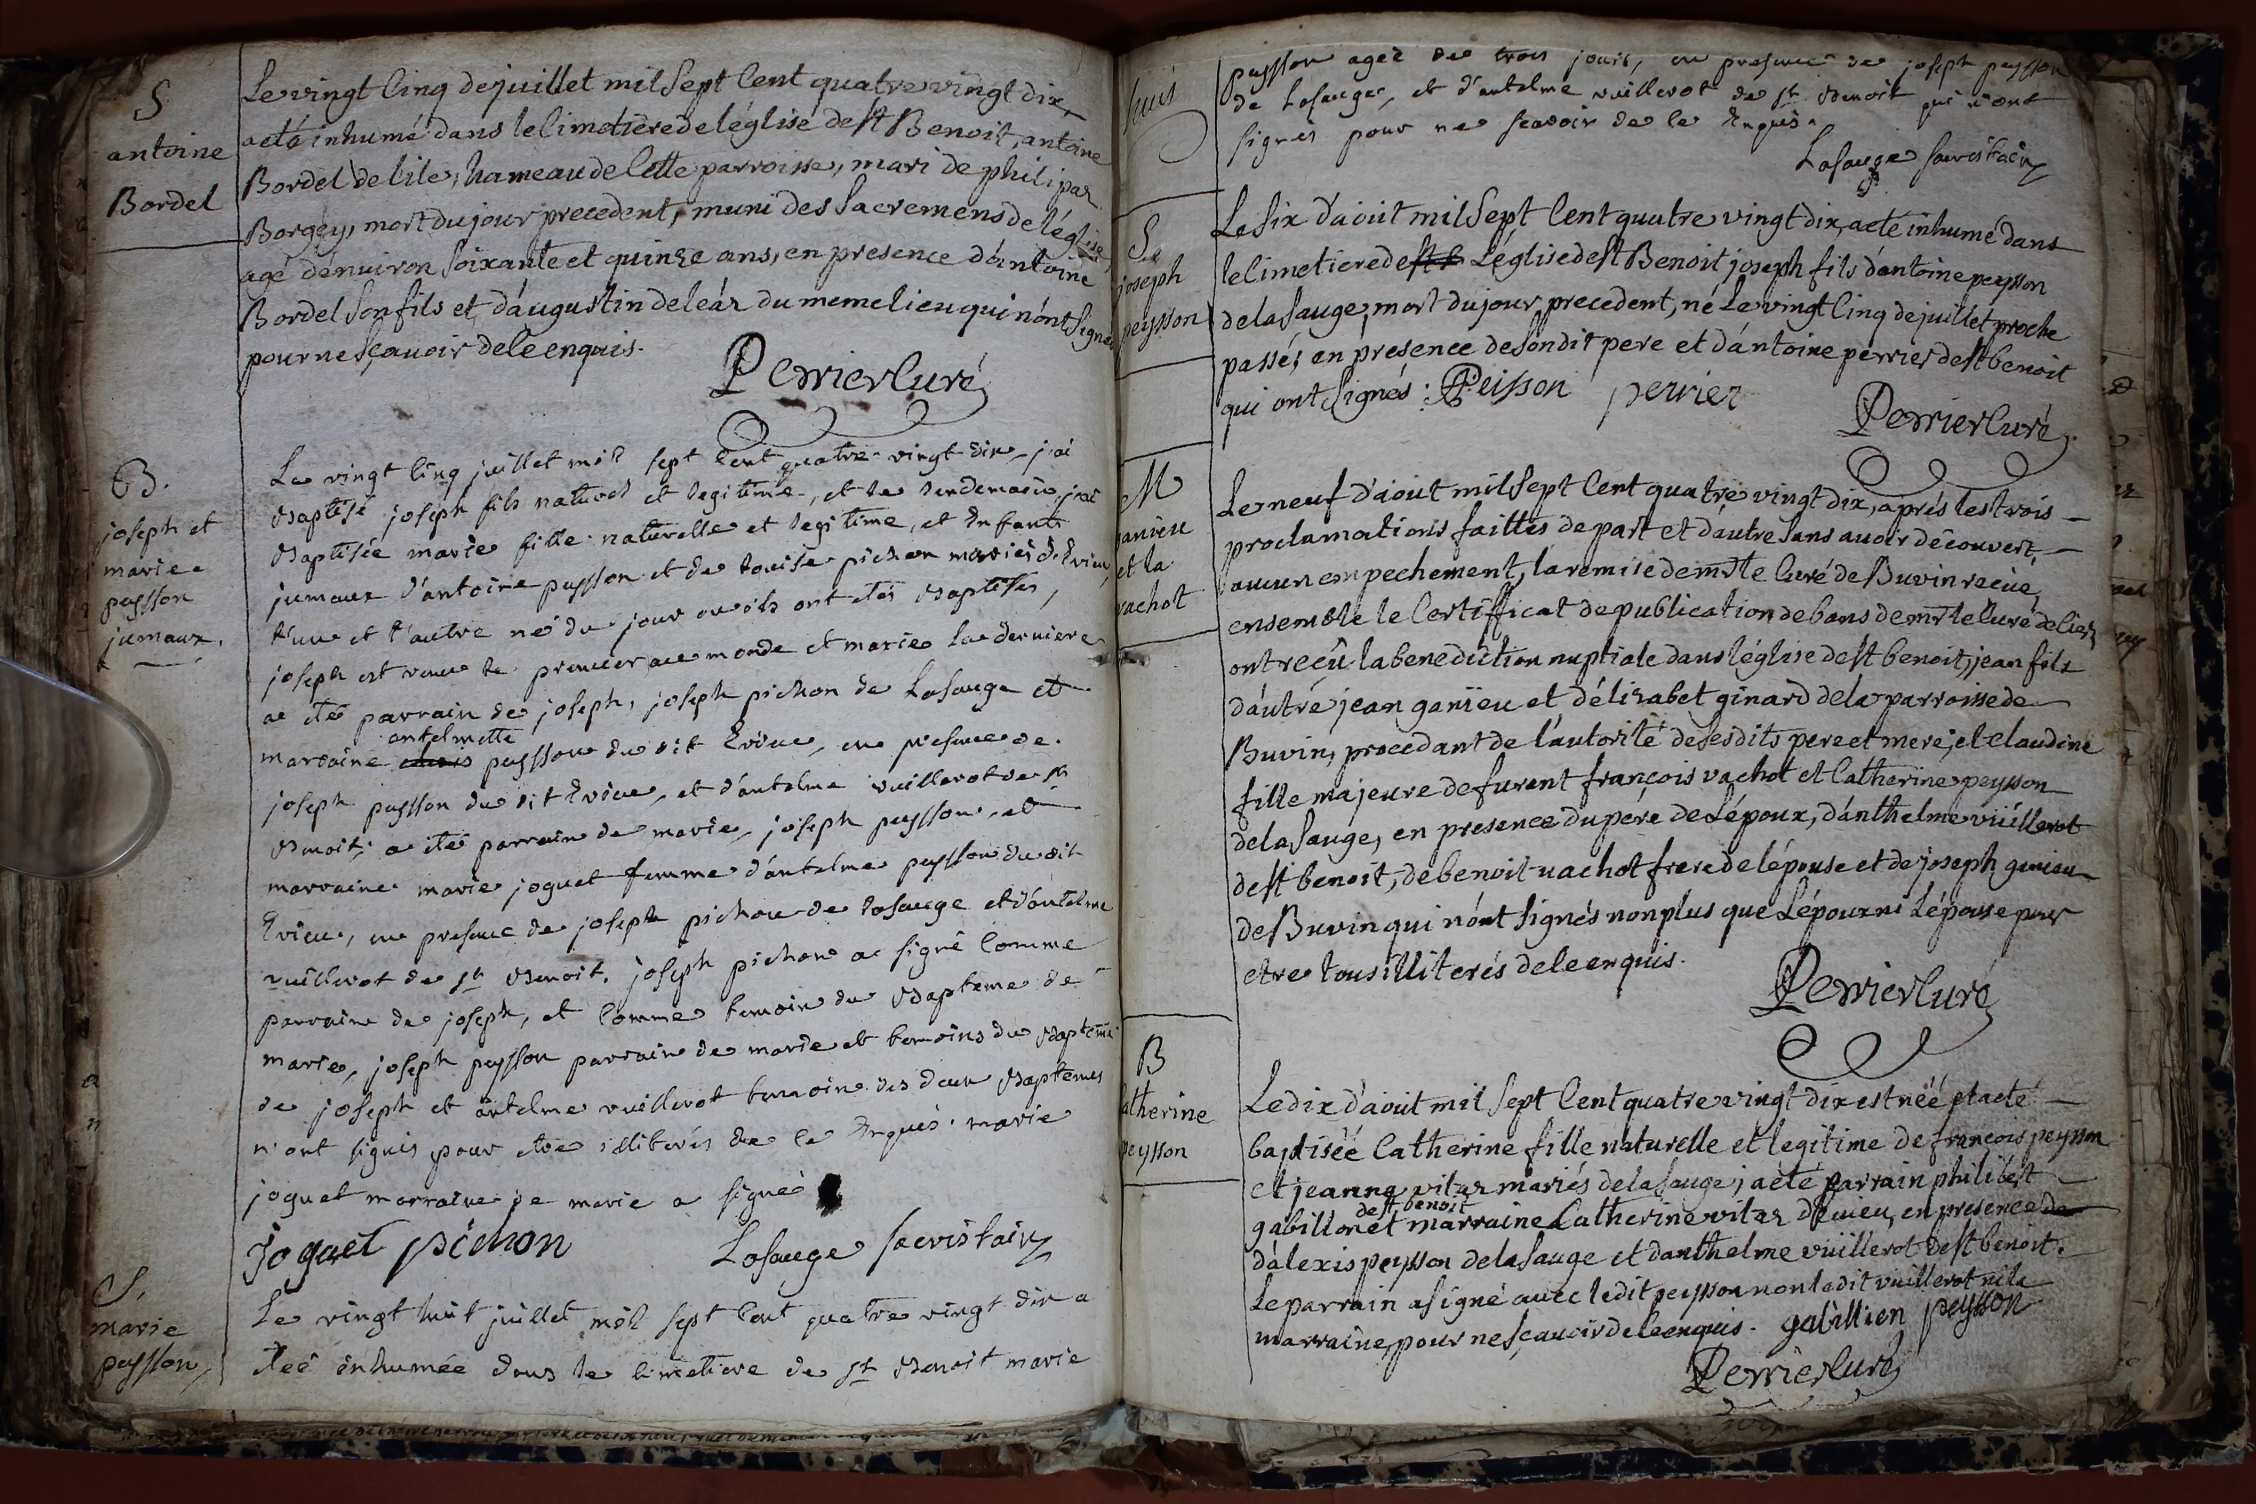 S
antoine
Bordel
Le vingt Cinq de juillet mil Sept Cent quatre vingt dix,
a eté inhumé dans le Cimetiere de léglise de st Benoit, antoine
Bordel de lile, hameau de Cette parroisse, mari de philipaz
Borgey, mort du jour precedent, muni des Sacremens de léglise,
agé dénuiron soixante et quinze ans, en presence dántoine
Bordel son fils et dáugustin deleáz du meme lieu qui nónt Signé
pour ne Sçauoir de le enquis.
Perrier Curé
B.
joseph et
marie
peysson
jumaux.
Le vingt Cinq juillet mil sept Cent quatre vingt dix j'ai
Baptisé joseph fils naturel et legitime, et le lendemain j'ai
Baptisée marie fille naturelle et legitime, et Enfants
jumaux d'antoine peysson et de louise pichon mariés d'Evieu,
l'un et l'autre né du jour ou ils ont étés Baptisés,
joseph est venu le premier au monde et marie la derniere
a été parrain de joseph, joseph pichon de Lasauge et
antelmette
marraine peysson du dit Evieu, en presence de
joseph peysson du dit Evieu, et d'antelme vuillerot de st
Benoit; a été parrain de marie, joseph peysson, et
marraine marie joguet femme d'antelme peysson du dit
Evieu, en presence de joseph pichon de lasauge et d'antelme
vuillerot de st Benoit. joseph pichon a signé Comme
parrain de joseph, et Comme temoin du Bapteme de
marie, joseph peysson parrain de marie et temoins du Bapteme
de joseph et antelme vuillerot temoin des deux Baptemes
n'ont signés pour etre illiterés de le Enquis. marie
joguet marraine de marie a signé
joguet pichon Lasauge sacristain
S.
marie
peysson
Le vingt huit juillet mil sept Cent quatre vingt dix a
étée inhumée dans le Cimetiere de st Benoit marie
peysson ageé de trois jours, en presence de joseph peysson
de Lasauge, et d'antelme vuillerot de st Benoit qui n'ont
signés pour ne scavoir de le Enquis.
Lasauge sacristain
S.
joseph
peysson
Le six d'aoüt mil Sept Cent quatre vingt dix, a eté inhumé dans
le Cimetiere de Léglise de st Benoit joseph fils dántoine peysson
de la sauge, mort du jour precedent, né Le vingt Cinq de juillet proche
passé, en presence de Sondit pere et dántoine perrier de st benoit
qui ont Signés: Peisson perrier
Perrier Curé
M
ganieu
et la
vachot
Le neuf d'aoüt mil Sept Cent quatre vingt dix, aprés les trois
proclamations faittes de part et dáutre sans auoir découvert
aucun empechement, la remise de mr le Curé de Buvin recüe,
ensemble le Certifficat de publication de bans de mr le Curé de Ciez
ont reçû la benediction nuptiale dans léglise de st benoit, jean fils
dáutre jean ganïeu et délizabet ginard de la parroisse de
Buvin, procedant de l'autorité de sesdits pere et mere; et claudine
fille majeure de furent françois vachot et Catherine peysson
de la Sauge, en presence du pére de Lépoux, dánthelme vüillerot
de st benoit, de benoit vachot frere de lépouse et de joseph ganieu
de Buvin qui nónt signés non plus que Lépoux ni Lépouse pour
etre tous illiterés de le enquis.
Perrier Curé
B
atherine
peysson
Le dix d'aoüt mil Sept Cent quatre vingt dix est néé et a eté
baptiséé Catherine fille naturelle et legitime de francois peysson
et jeanne vitaz mariés de la Sauge; a eté parrain philibért
de st benoit
gabillon et marraine Catherine vitaz déuieu, en presence
dálexis peysson de la sauge et danthelme vüillerot de st benoit.
Le parrain a signé auec ledit peysson non ledit vuillerot ni la
marraine pour ne sçauoir de le enquis. gabillion peysson
Perrier Curé